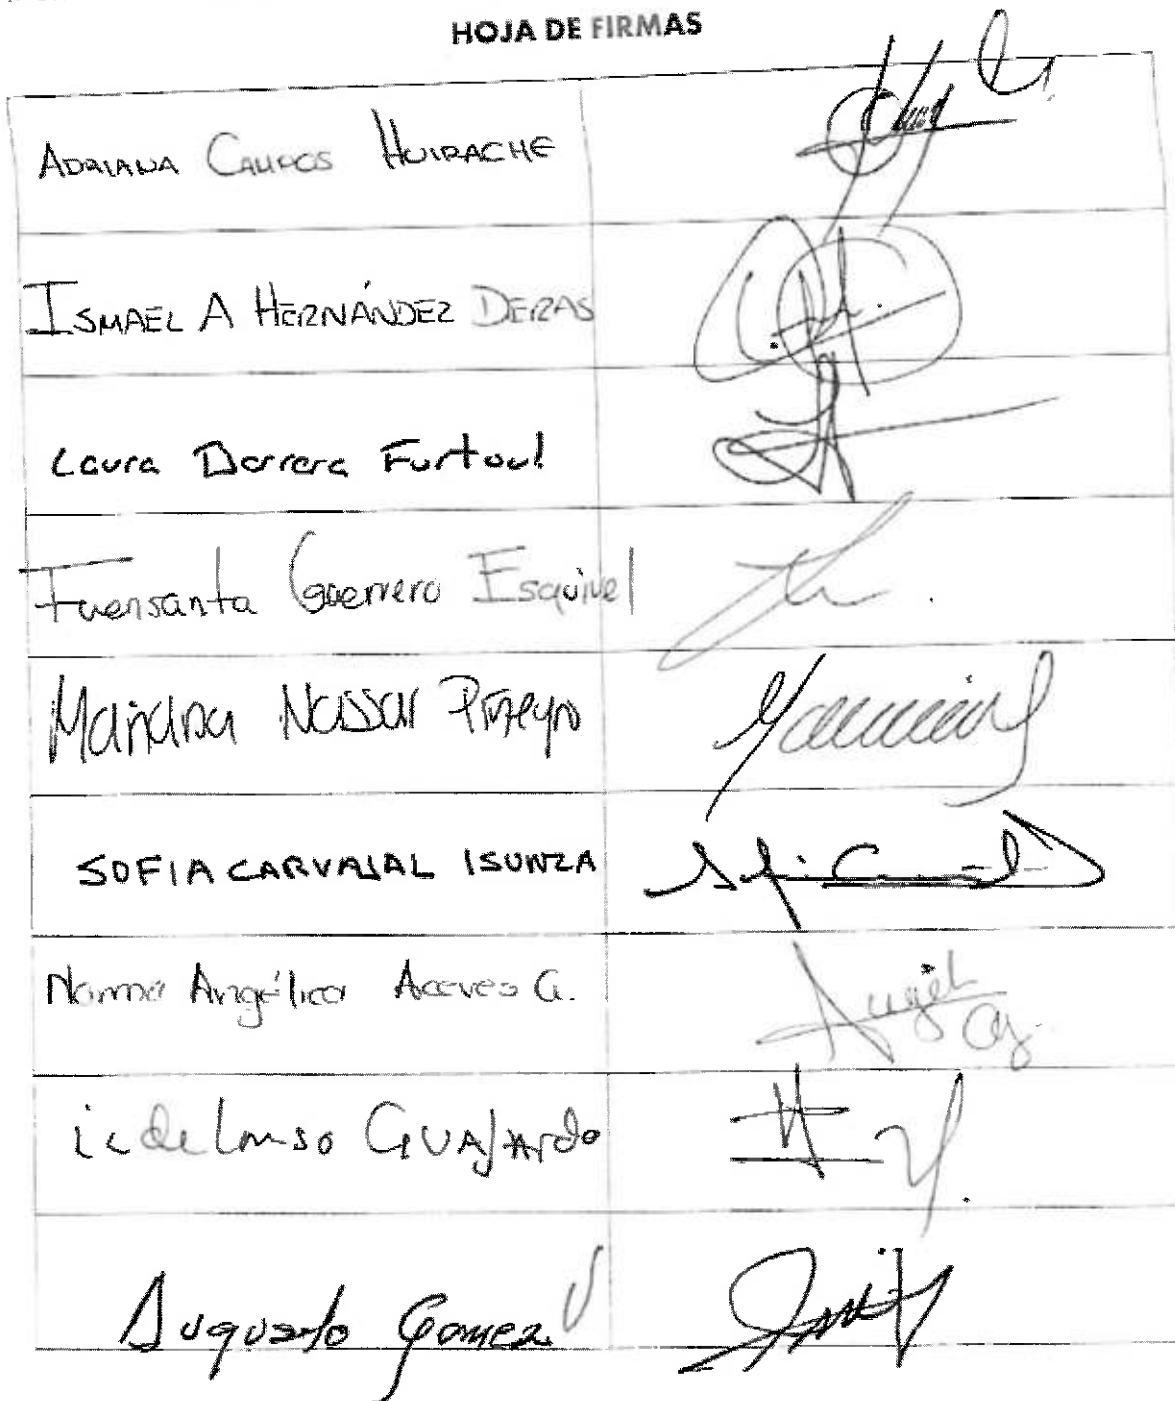 HOJA DE FIRMAS
ADRIANA CAMPOS HUIRACHE
ISMAEL A HERNÁNDEZ DERAS
Laura Barrera Fortoul
Fuensanta Guerrero Esquivel
Mariana Nassar Piñeyro
SOFIA CARVAJAL ISUNZA
Norma Angélica Aceves G.
ildefonso GUAJARDO
Augusto Gomez V